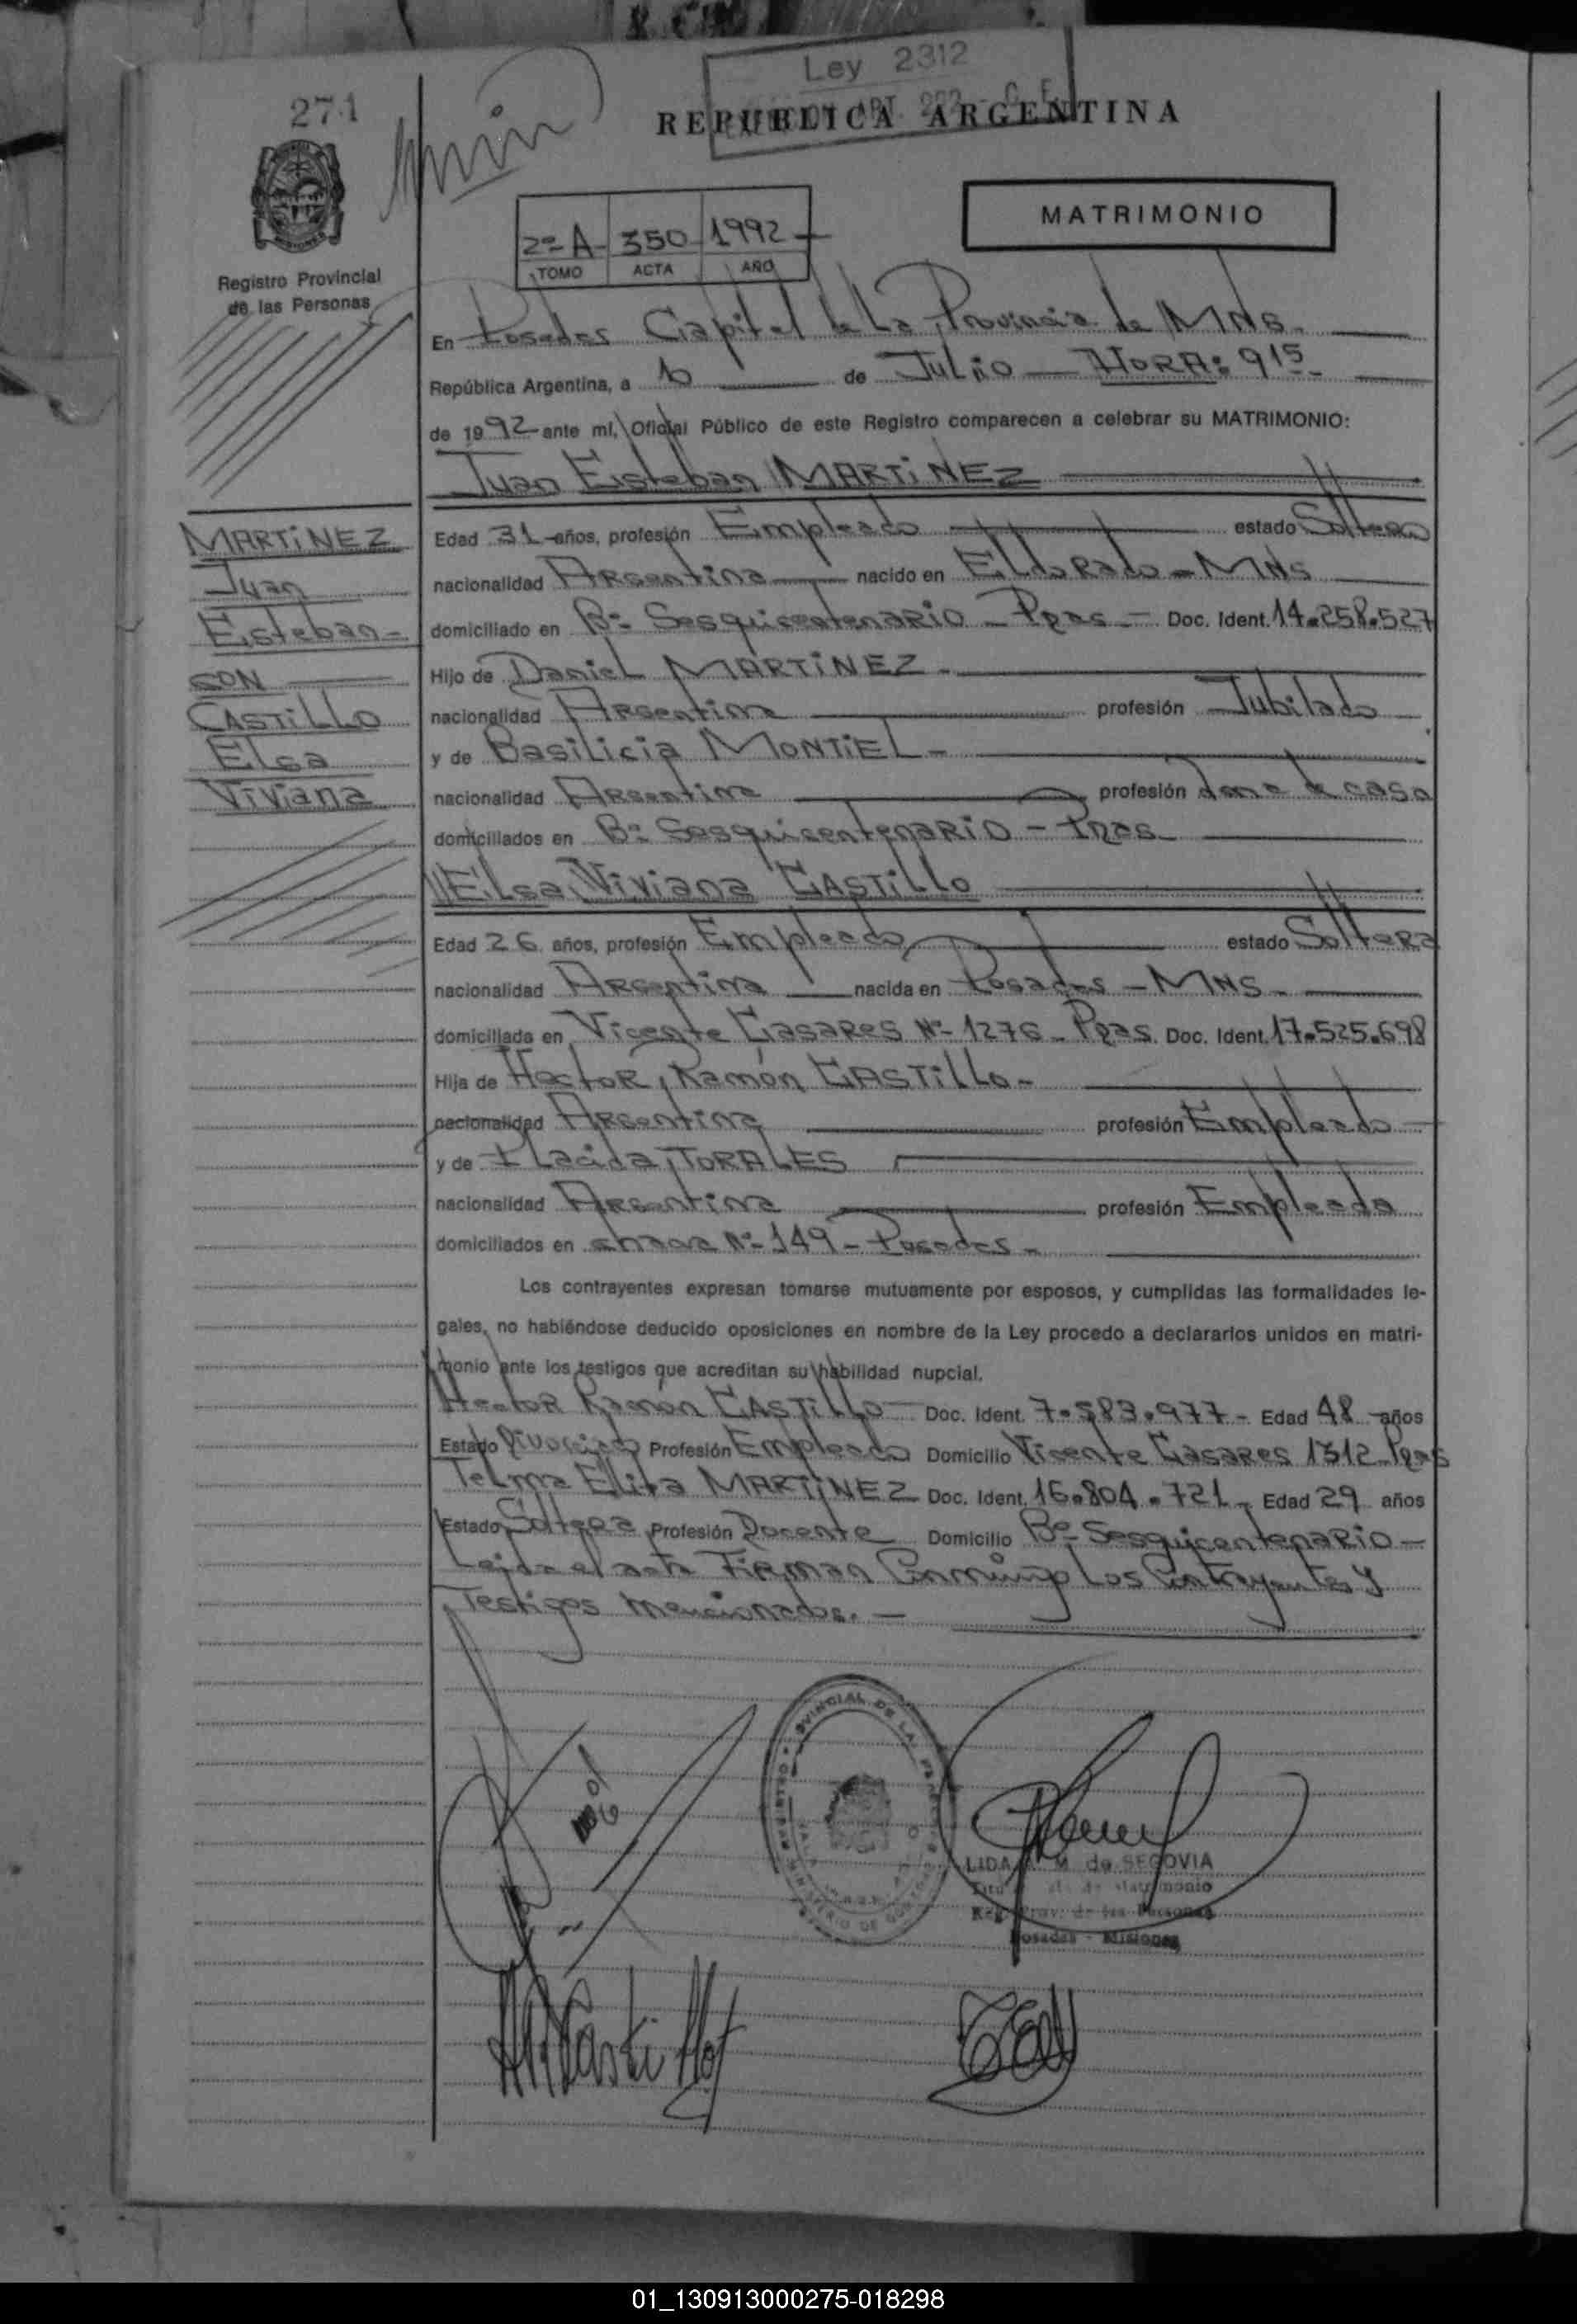 Ley 2312
271
REPUBLICA ARGENTINA
MATRIMONIO
2º A 350 1992
TOMO ACTA AÑO
Registro Provincial
de las Personas
En Posadas Capital de La Provincia de MNS.
República Argentina, a 10 de Julio - HORA: 9 15
de 1992 ante mí, Oficial Público de este Registro comparecen a celebrar su MATRIMONIO:
Juan Esteban MARTINEZ
MARTINEZ
Juan
Esteban-
CON
CASTILLO
Elsa
Viviana
Edad 31 años, profesión Empleado estado Soltero
nacionalidad Argentina nacido en Eldorado - MNS
domiciliado en Bº Sesquicentenario - Pdas - Doc. Ident. 14.258.527
Hijo de Daniel MARTINEZ -
nacionalidad Argentina profesión Jubilado
y de Basilicia MONTIEL -
nacionalidad Argentina profesión dama de casa
domiciliados en Bº Sesquicentenario - Pdas
Elsa Viviana CASTILLO
Edad 26 años, profesión Empleada estado Soltera
nacionalidad Argentina nacida en Posadas - MNS -
domiciliada en Vicente Casares Nº 1276 - Pdas. Doc. Ident. 17.525.698
Hija de Hector Ramón CASTILLO -
nacionalidad Argentina profesión Empleado
y de Placida TORALES
nacionalidad Argentina profesión Empleada
domiciliados en chacra Nº 149 - Posadas -
Los contrayentes expresan tomarse mutuamente por esposos, y cumplidas las formalidades le-
gales, no habiéndose deducido oposiciones en nombre de la Ley procedo a declararlos unidos en matri-
monio ante los testigos que acreditan su habilidad nupcial.
Hector Ramón CASTILLO Doc. Ident. 7.583.977 - Edad 48 años
Estado Divorciado Profesión Empleado Domicilio Vicente Casares 1312 Pdas
Telma Elita MARTINEZ Doc. Ident. 16.804.721 - Edad 29 años
Estado Soltera Profesión Docente Domicilio Bº Sesquicentenario -
Leida el acta Firman Conmigo Los Contrayentes y
Testigos mencionados. -
LIDA M. de SEGOVIA
Matrimonio
Reg. Prov. de las Personas
Posadas - Misiones
01_130913000275-018298